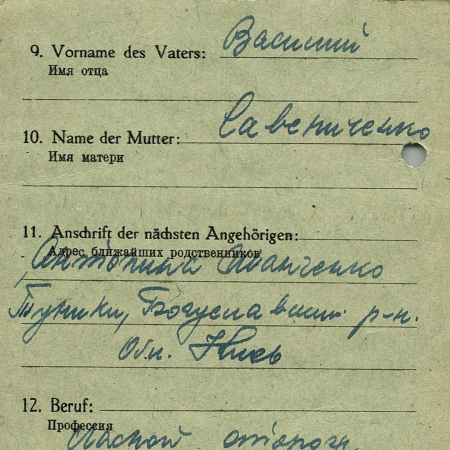 9. Vorname des Vaters: Василий
Имя отца
10. Name der Mutter: Савениченко
Имя матери
11. Anschrift der nächsten Angehörigen:
Адрес ближайших родственников
Антонина Иванченко
Туники, Богуславский р-н.
Обл. Киев
12. Beruf:
Профессия